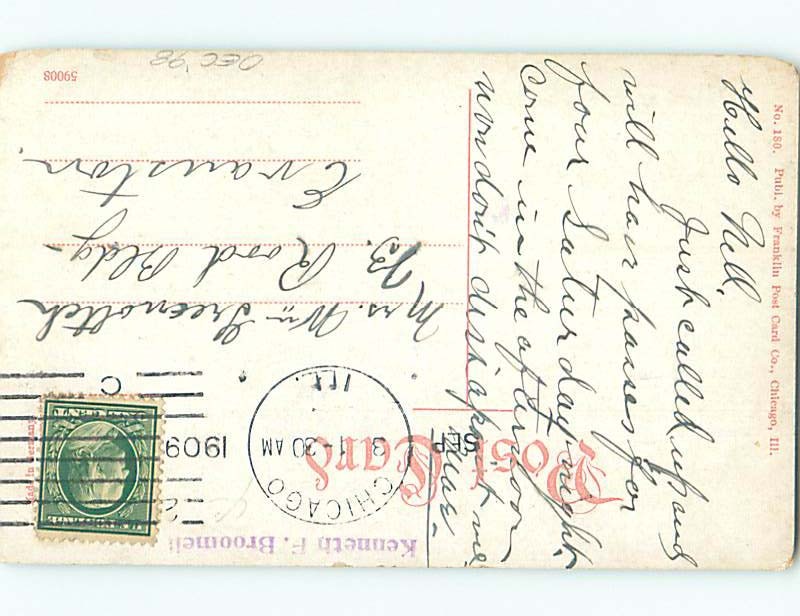 Hello Nell,
Just called up and
will have passes for
four Saturday night,
come in the afternoon
won don't disapoint me
Post Card
No. 180. Publ. by Franklin Post Card Co., Chicago, Ill.
CHICAGO
SEP
3 1-30 AM
1909
ILL.
Mrs. Wm
M. B. Rood Bldg -
Evanston.
59008
DEC '98
Kenneth F. Broomell
Made in Germany